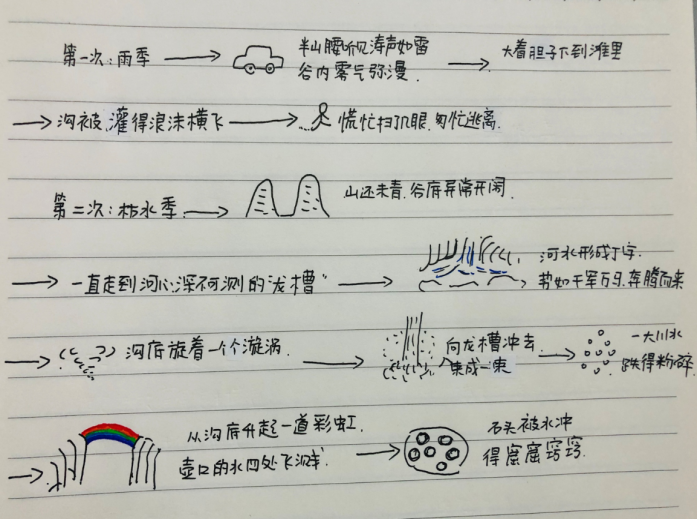 第一次:雨季
半山腰听见涛声如雷
谷内雾气弥漫.
大着胆子下到滩里
沟被灌得浪沫横飞
慌忙扫几眼,匆忙逃离.
第二次:枯水季
山还未青.谷底异常开阔
一直走到河心深不可测的龙槽"
河水形成丁字.
势如千军万马.奔腾而来
沟底旋着一个个漩涡.
向龙槽冲去
集成一束
一大川水
跌得粉碎
从沟底升起一道彩虹.
壶口的水四处飞溅
石头被水冲
得窟窟窍窍